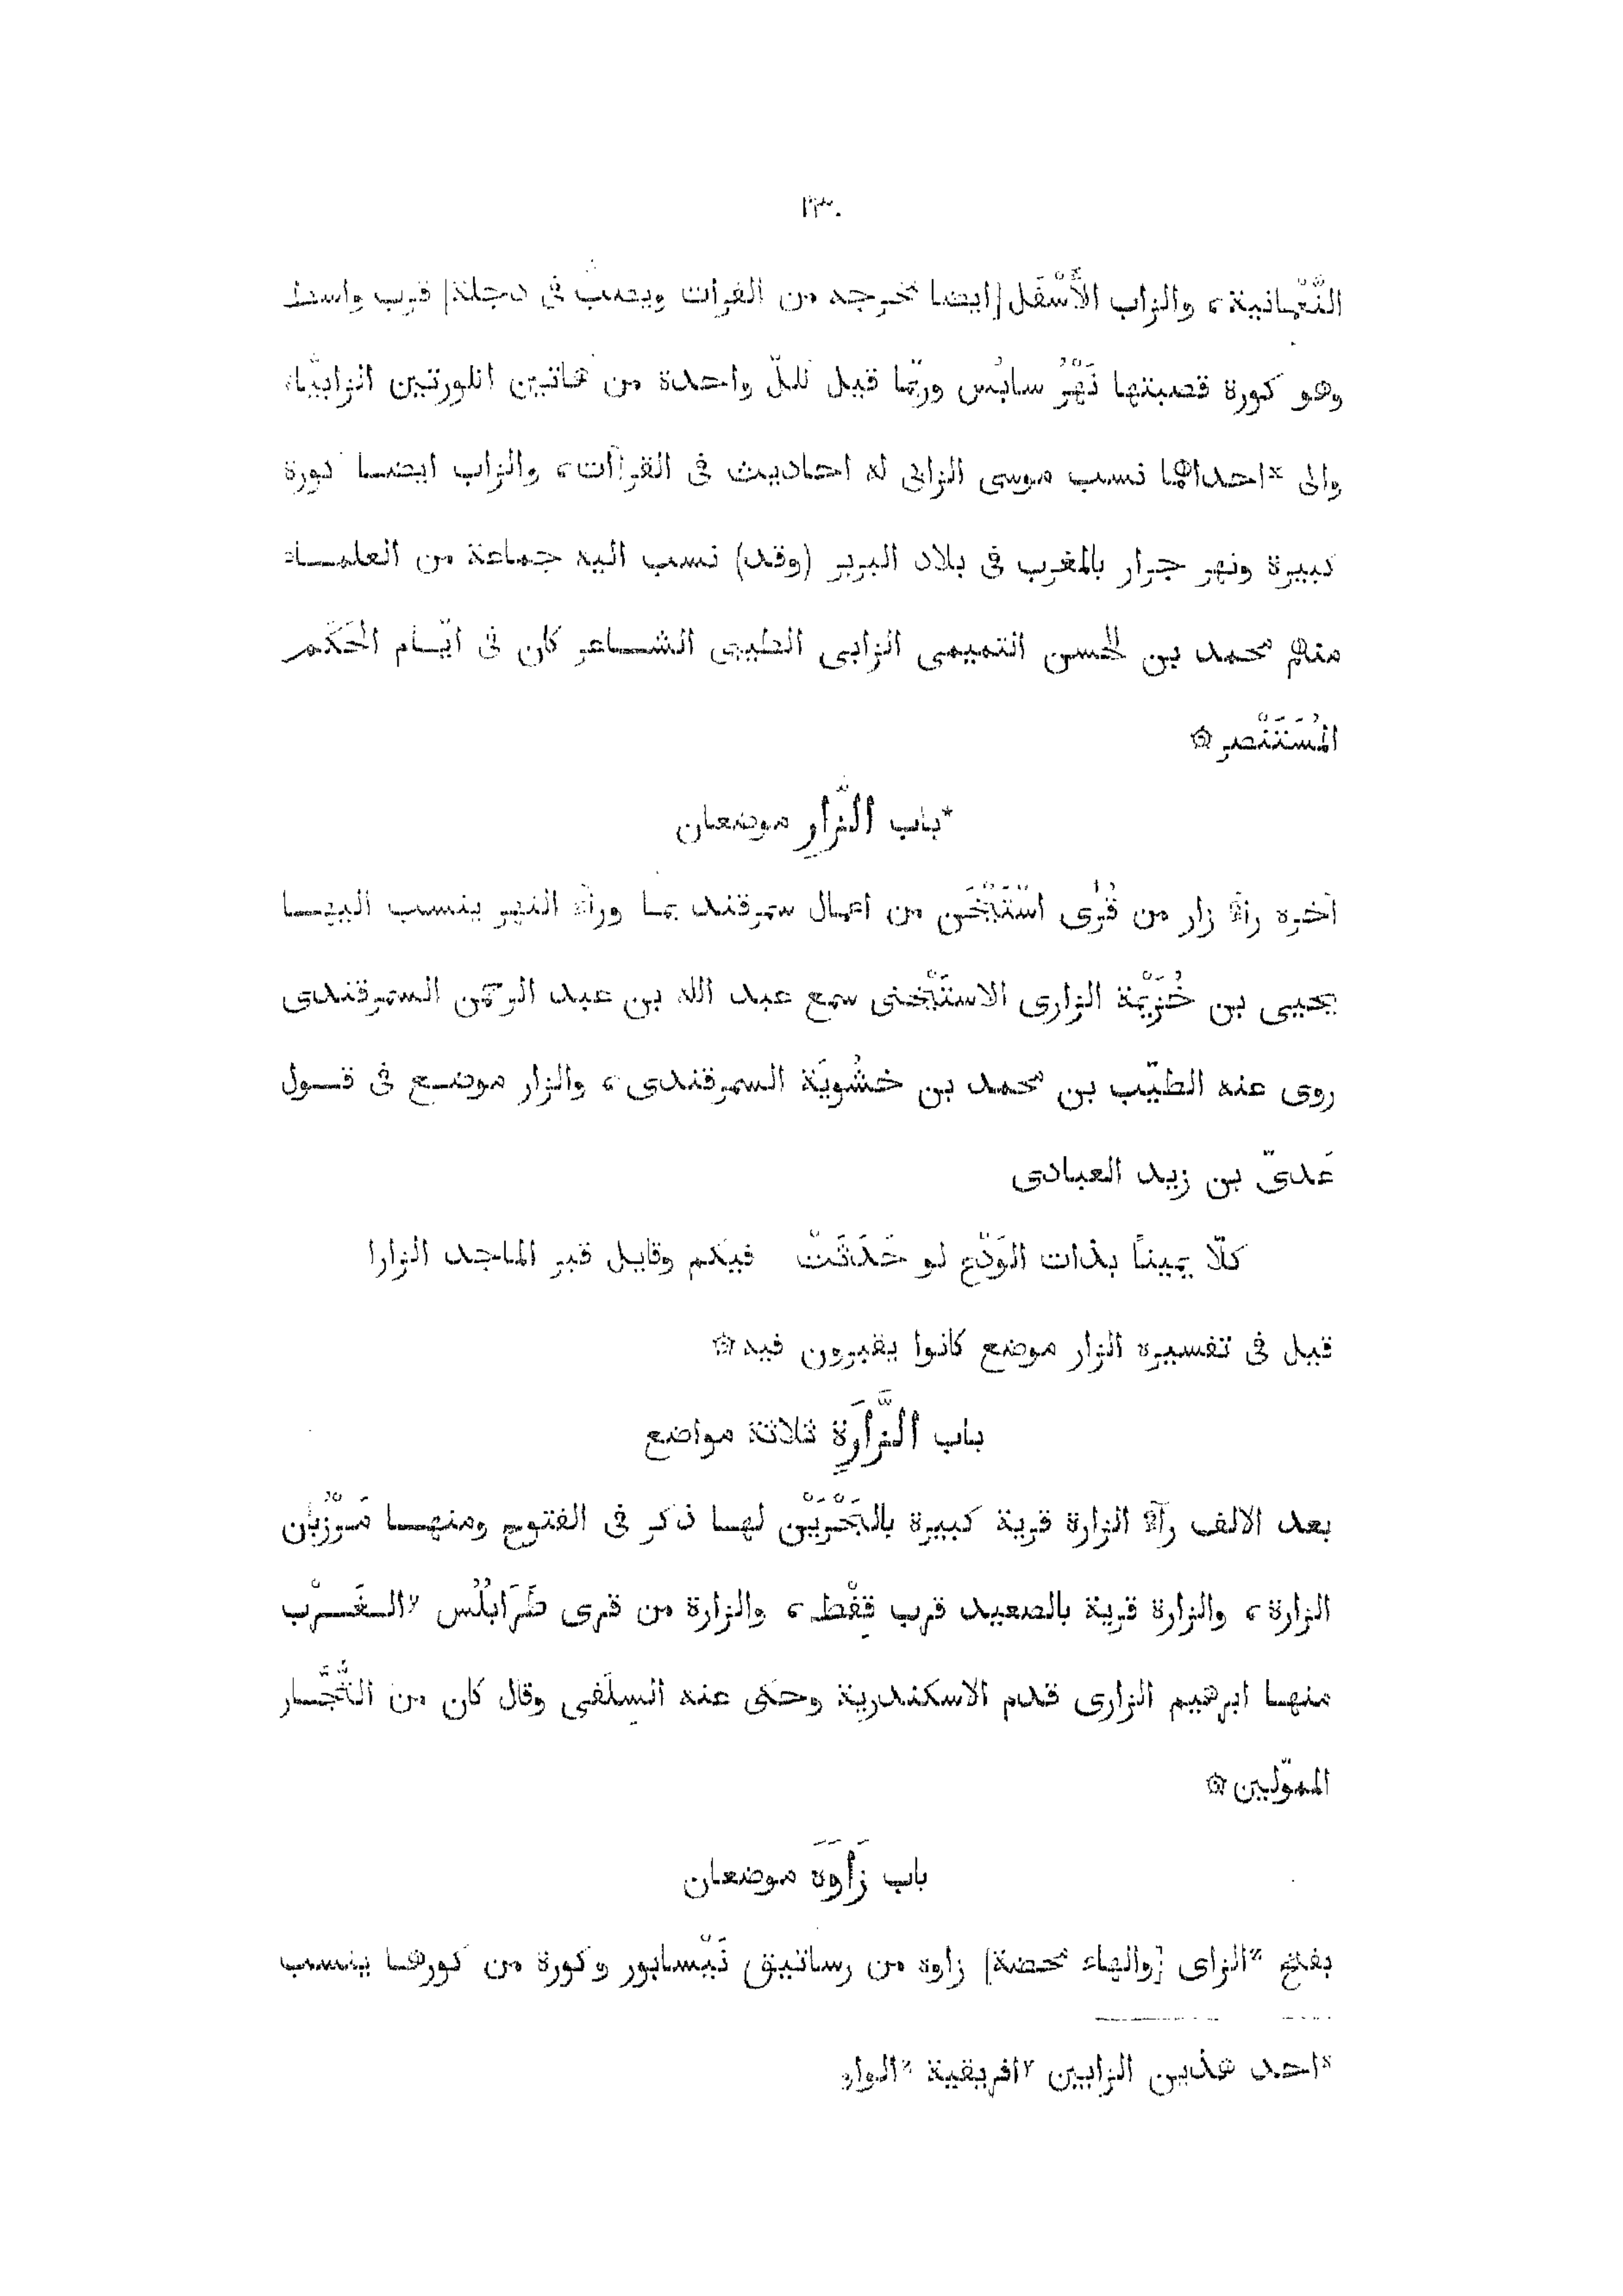 ٢٣٠
النُّعْمانية، والزاب الأَسْفَل [ايضا مخرجه من الفرات ويصبّ فى دجلة] قرب واسط
وهو كورة قصبتها نَهْرُ سابُس وربّما قيل لللّ واحدة من هاتين اللورتين الزابيّا،
والى *احداهما نسب موسى الزابى له احاديث فى القراآت، والزاب ايضا كورة
كبيرة ونهر جرار بالمغرب فى بلاد البربر (وقد) نسب اليه جماعة من العلماء
منهم محمد بن الحسن التميمى الزابى الطبيى الشاعر كان فى ايّام الحَكَم
المُسْتَنْصر ۞
*باب الزَّار موضعان
اخره رآء زار من قُرَى اسْتَيْخَن من اعمال سمرقند بما ورآء النهر ينسب اليها
يحيى بن خُزَيْمة الزارى الاستَيْخنى سمع عبد الله بن عبد الرحمن السمرقندى
روى عنه الطيّب بن محمد بن خشُويَة السمرقندى، والزار موضع فى قول
عَدىّ بن زيد العبادى
كلّا يميناً بذات الوَدْع لو حَدَثَتْ فيكم وقابل قبر الماجد الزارا
قيل فى تفسيره الزار موضع كانوا يقبرون فيه ۞
باب الزَّارَة ثلاثة مواضع
بعد الالف رآء الزارة قرية كبيرة بالبَحْرَيْن لها ذكر فى الفتوح ومنها مَرْزُبان
الزارة، والزارة قرية بالصعيد قرب قِفْط، والزارة من قرى طَرَابُلُس ʸالغَرْب
منها ابرهيم الزارى قدم الاسكندرية وحكى عنه السِلَفى وقال كان من التُّجَّار
المموّلين ۞
باب زَاوَه موضعان
بفتح ᶻالزاى [والهاء محضة] زاوه من رساتيق نَيْسابور وكورة من كورها ينسب
ˣاحد هذين الزابين ʸافريقية ᶻالواو